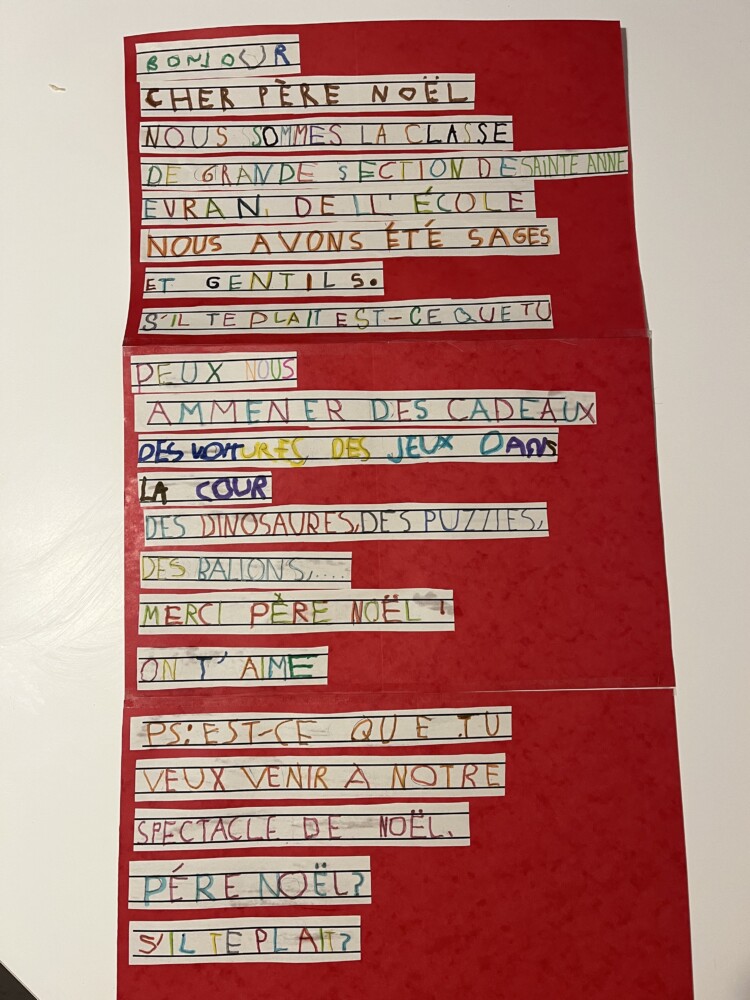 BONJOUR
CHER PÈRE NOËL
NOUS SOMMES LA CLASSE
DE GRANDE SECTION DE SAINTE ANNE
EVRAN. DE L L'ÉCOLE
NOUS AVONS ÉTÉ SAGES
ET GENTILS.
S'IL TE PLAIT EST-CE QUE TU
PEUX NOUS
AMMENER DES CADEAUX
DES VOITURES DES JEUX DANS
LA COUR
DES DINOSAURES, DES PUZZLES,
DES BALLONS,....
MERCI PÈRE NOËL !
ON T'AIME
PS: EST-CE QUE TU
VEUX VENIR À NOTRE
SPECTACLE DE NOËL.
PÉRE NOËL?
S'IL TE PLAIT?